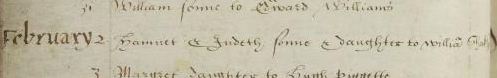 31 William sonne to Edward Williams
February 2 Hamnet & Judeth sonne & daughter to Williā
3 Margret daughter to Hugh Piggette